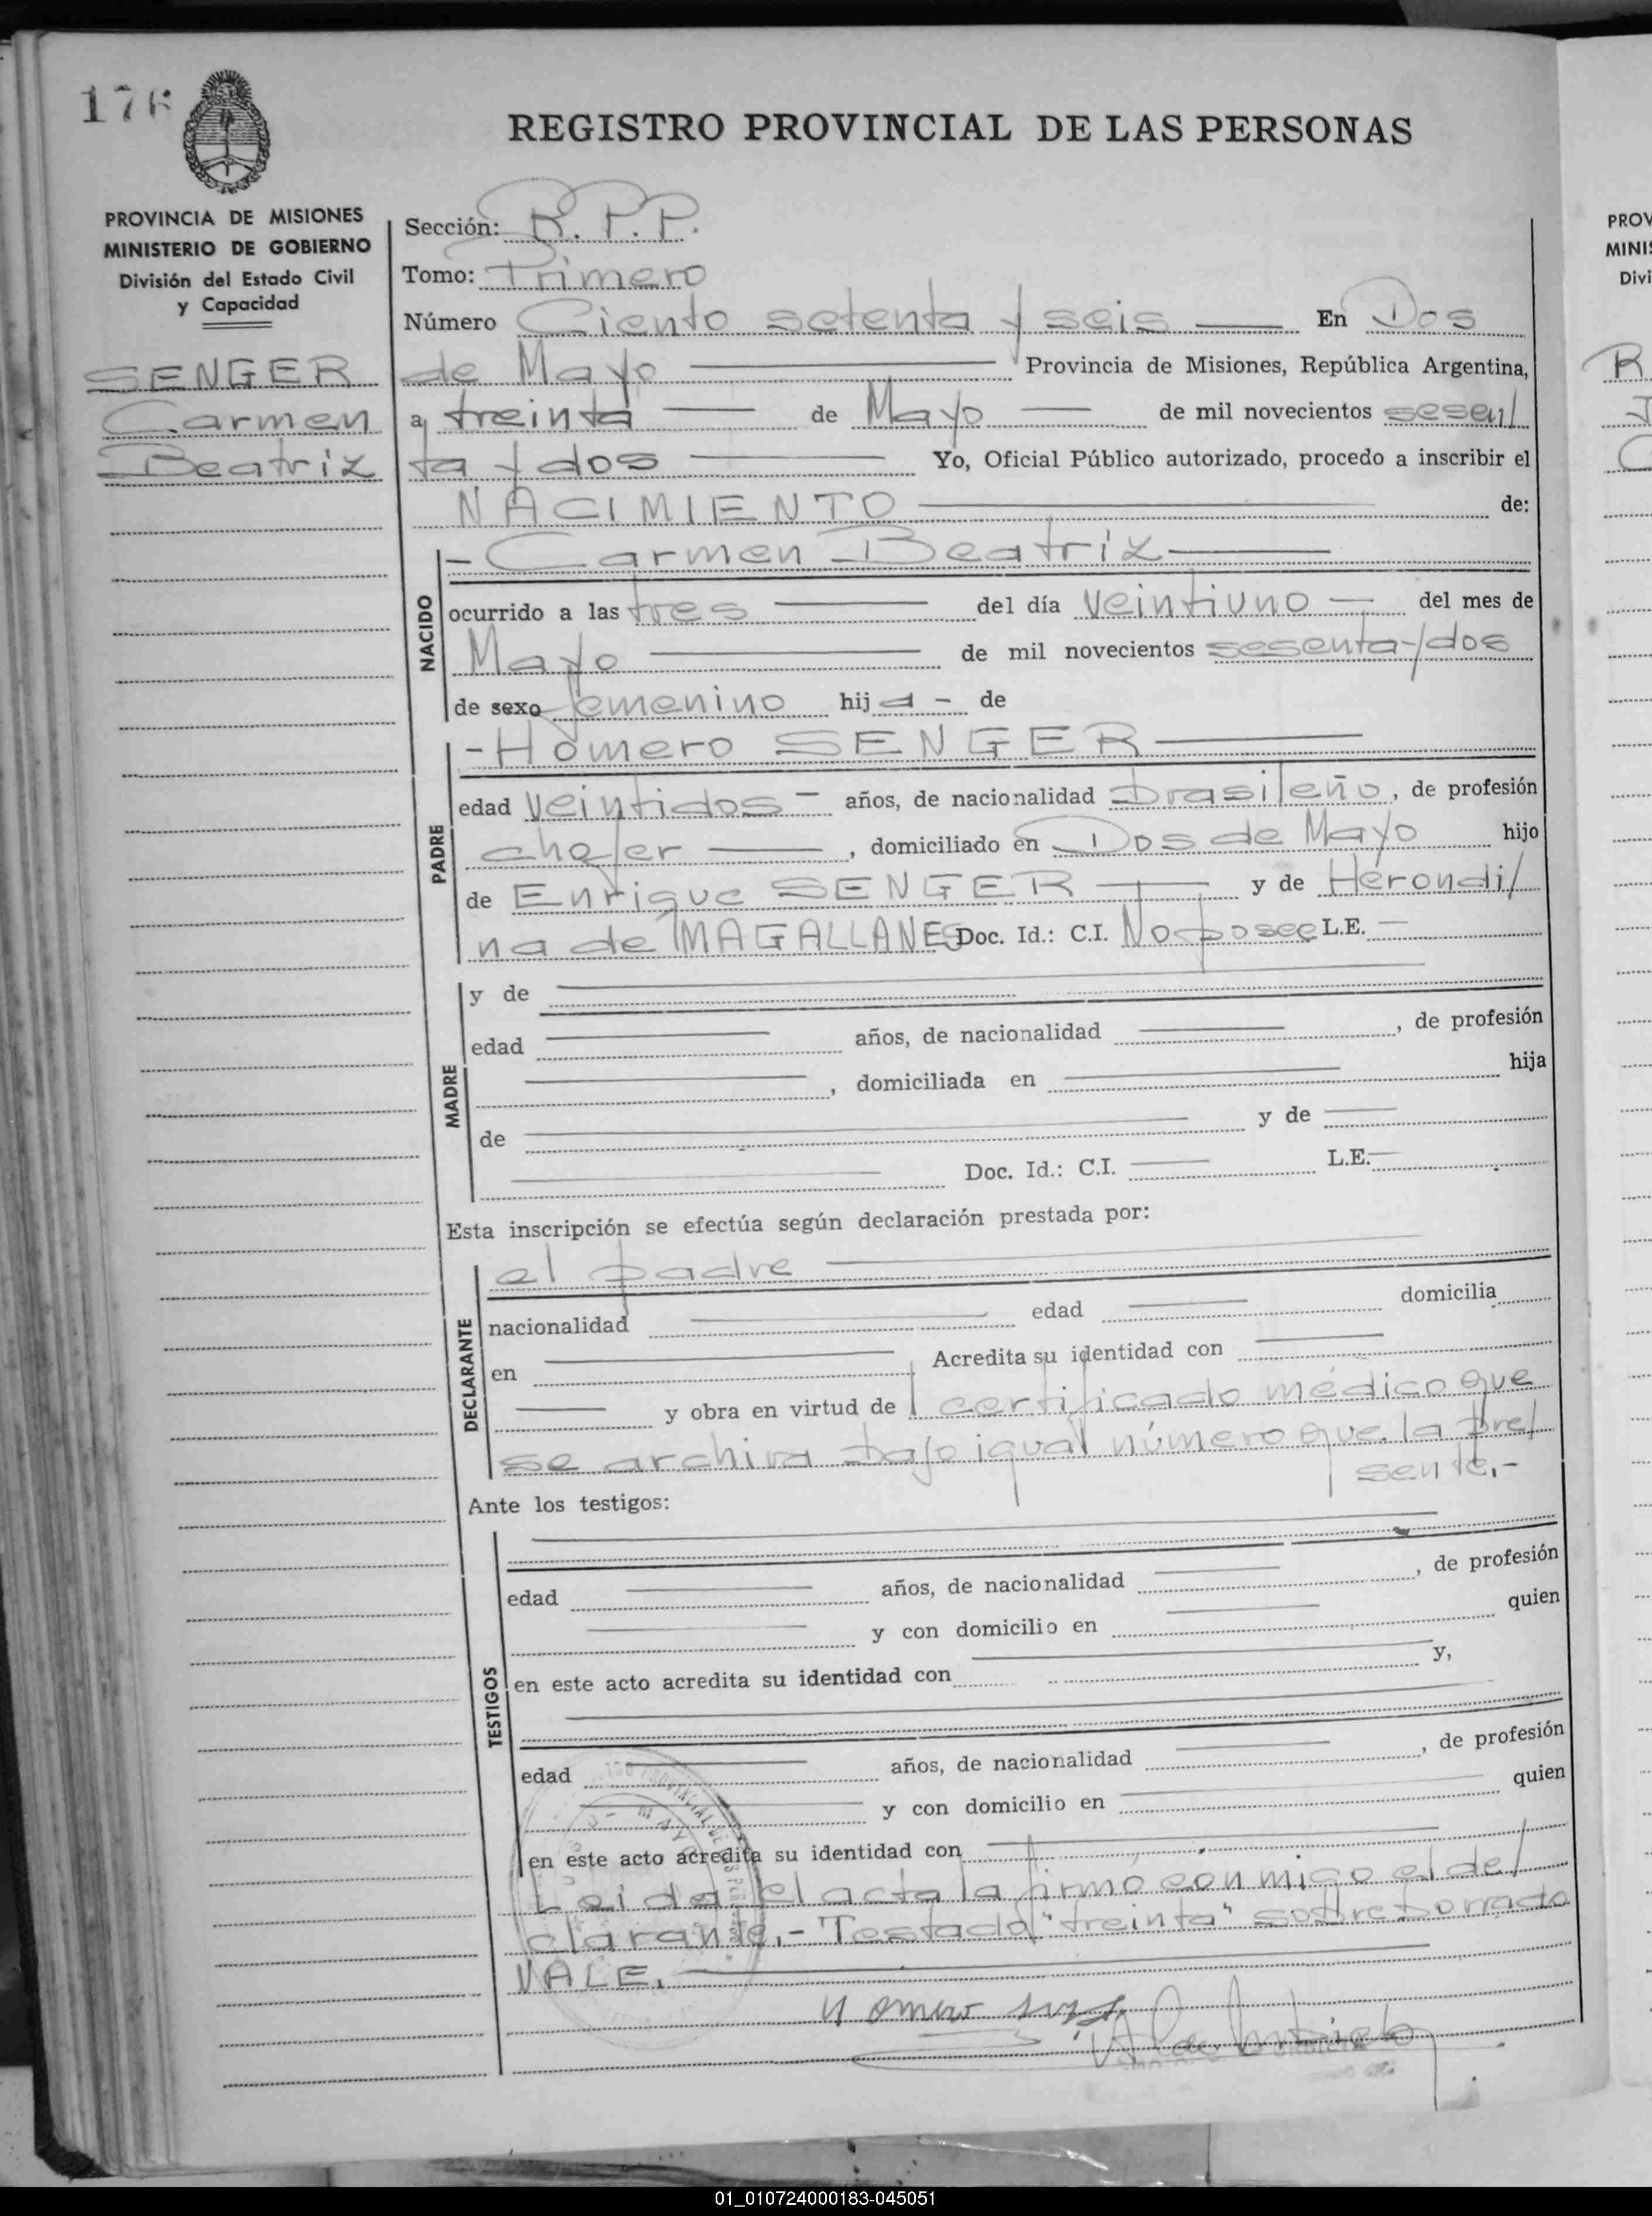 176
REGISTRO PROVINCIAL DE LAS PERSONAS
PROVINCIA DE MISIONES
MINISTERIO DE GOBIERNO
División del Estado Civil
y Capacidad
SENGER
Carmen
Beatriz
Sección: R.P.P.
Tomo: Primero
Número Ciento setenta y seis En Dos
de Mayo Provincia de Misiones, República Argentina,
a treinta de Mayo de mil novecientos sesen/
ta y dos Yo, Oficial Público autorizado, procedo a inscribir el
NACIMIENTO de:
- Carmen Beatriz
NACIDO
ocurrido a las tres del día veintiuno del mes de
Mayo de mil novecientos sesenta y dos
de sexo femenino hij a - de
- Homero SENGER
PADRE
edad veintidos - años, de nacionalidad brasileño, de profesión
chofer, domiciliado en Dos de Mayo hijo
de Enrique SENGER y de Herondi/
na de MAGALLANES Doc. Id.: C.I. No posee L.E.
MADRE
y de
edad años, de nacionalidad , de profesión
, domiciliada en hija
de y de
Doc. Id.: C.I. L.E.
Esta inscripción se efectúa según declaración prestada por:
el padre
DECLARANTE
nacionalidad edad domicilia
en Acredita su identidad con
y obra en virtud de certificado médico que
se archiva bajo igual número que la pre/
sente.-
Ante los testigos:
TESTIGOS
edad años, de nacionalidad , de profesión
y con domicilio en quien
en este acto acredita su identidad con y,
edad años, de nacionalidad , de profesión
y con domicilio en quien
en este acto acredita su identidad con
Leida el acta la firmó conmigo el de/
clarante.- Testado "treinta" sobreborrado
VALE.
PROV
MINIS
Divi
R
01_010724000183-045051